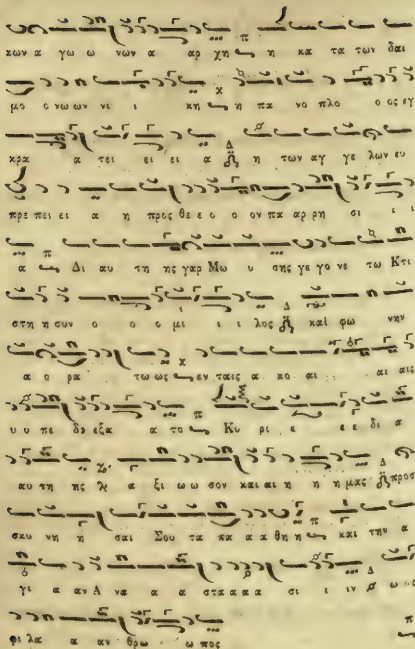 κων α γω ω νων α αρ χη η κα τα των δαι
μο ο νω ων νι ι κη η πα νο πλο ο ος εγ
κρα α τει ει ει α η των αγ γε λων ευ
πρε πει ει α η προς θε ε ο ο ον πα αρ ρη σι ι
α Δι αυ τη ης γαρ Μω υ σης γε γο νε τω Κτι
στη η συν ο ο ο μι ι ι λος και φω νην
α ο ρα τω ως εν ταις α κο αι αι αις
υ υ πε δε εξα α το Κυ ρι ε ε ε δι α
αυ τη ης α ξι ω ω σον και αι η η η μας προσ
σκυ νη η σαι Σου τα πα α α θη η και την α
γι α αν Α να α α στα α α α σι ι ιν ω ως
φι λα α αν θρω ω πος